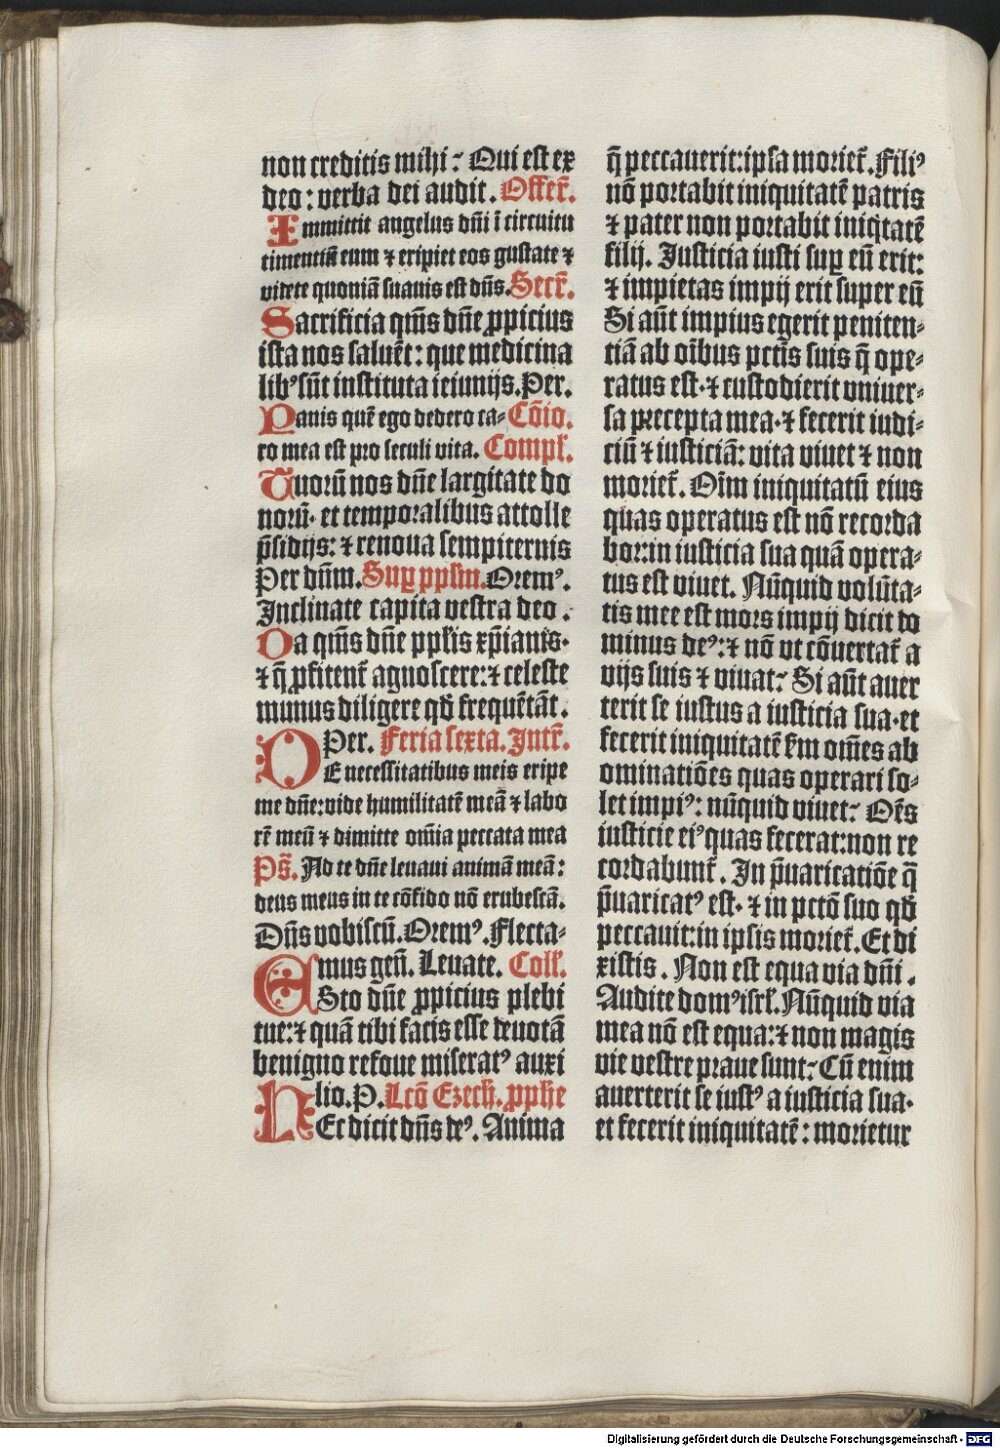 non creditis mihi? Qui est ex
deo: verba dei audit. Offer̄.
Immittit angelus dn̄i ī circuitu
timentiū eum ⁊ eripiet eos gustate ⁊
videte quoniā suauis est dn̄s. Secr̄.
Sacrificia qms̄ dn̄e ꝓpicius
ista nos saluēt: que medicina
libꝰ sūt instituta ieiunijs. Per.
Panis quē ego dedero ca- Cōio.
ro mea est pro seculi vita. Compl̄.
Tuorū nos dn̄e largitate do
norū· et temporalibus attolle
p̄sidijs: ⁊ renoua sempiternis
Per dūm. Suꝑ pplm̄. Oremꝰ.
Inclinate capita vestra deo.
Da qms̄ dn̄e ppl̄is xp̄ianis·
⁊ q̄ ꝓfitent̄ agnoscere: ⁊ celeste
munus diligere qd̄ frequētāt.
Per. Feria sexta. Intr̄.
DE necessitatibus meis eripe
me dn̄e: vide humilitatē meā ⁊ labo
rē meū ⁊ dimitte om̄ia peccata mea
Ps̄. Ad te dn̄e leuaui animā meā:
deus meus in te cōfido nō erubescā.
Dn̄s vobiscū. Oremꝰ. Flecta-
mus gen̄. Leuate. Coll̄.
ESto dn̄e ꝓpicius plebi
tue: ⁊ quā tibi facis esse deuotā
benigno refoue miseratꝰ auxi
lio. P. Lcō Ezech. ꝓphe
HEc dicit dn̄s deꝰ. Anima
q̄ peccauerit: ipsa moriet̄. Filiꝰ
nō portabit iniquitatē patris
⁊ pater non portabit iniq̇tatē
filij. Justicia iusti suꝑ eū erit:
⁊ impietas impij erit super eū
Si aūt impius egerit peniten-
tiā ab oībus pctīs suis q̄ ope-
ratus est· ⁊ custodierit vniuer-
sa precepta mea· ⁊ fecerit iudi-
ciū ⁊ iusticiā: vita viuet ⁊ non
moriet̄. Oīm iniquitatū eius
quas operatus est nō recorda
bor: in iusticia sua quā opera-
tus est viuet. Nūquid volūta-
tis mee est mors impij dicit do
minus deꝰ: ⁊ nō vt cōuertat̄ a
vijs suis ⁊ viuat? Si aūt auer
terit se iustus a iusticia sua· et
fecerit iniquitatē s̄m om̄es ab
ominatiōes quas operari so-
let impiꝰ: nūquid viuet? Om̄s
iusticie eiꝰ quas fecerat: non re
cordabunt̄. In p̄uaricatiōe q̄
p̄uaricatꝰ est· ⁊ in pctō suo qd̄
peccauit: in ipsis moriet̄. Et di
xistis. Non est equa via dn̄i.
Audite domꝰ isrl̄. Nūquid via
mea nō est equa: ⁊ non magis
vie vestre praue sunt? Cū enim
auerterit se iustꝰ a iusticia sua·
et fecerit iniquitatē: morietur
Digitalisierung gefördert durch die Deutsche Forschungsgemeinschaft - DFG